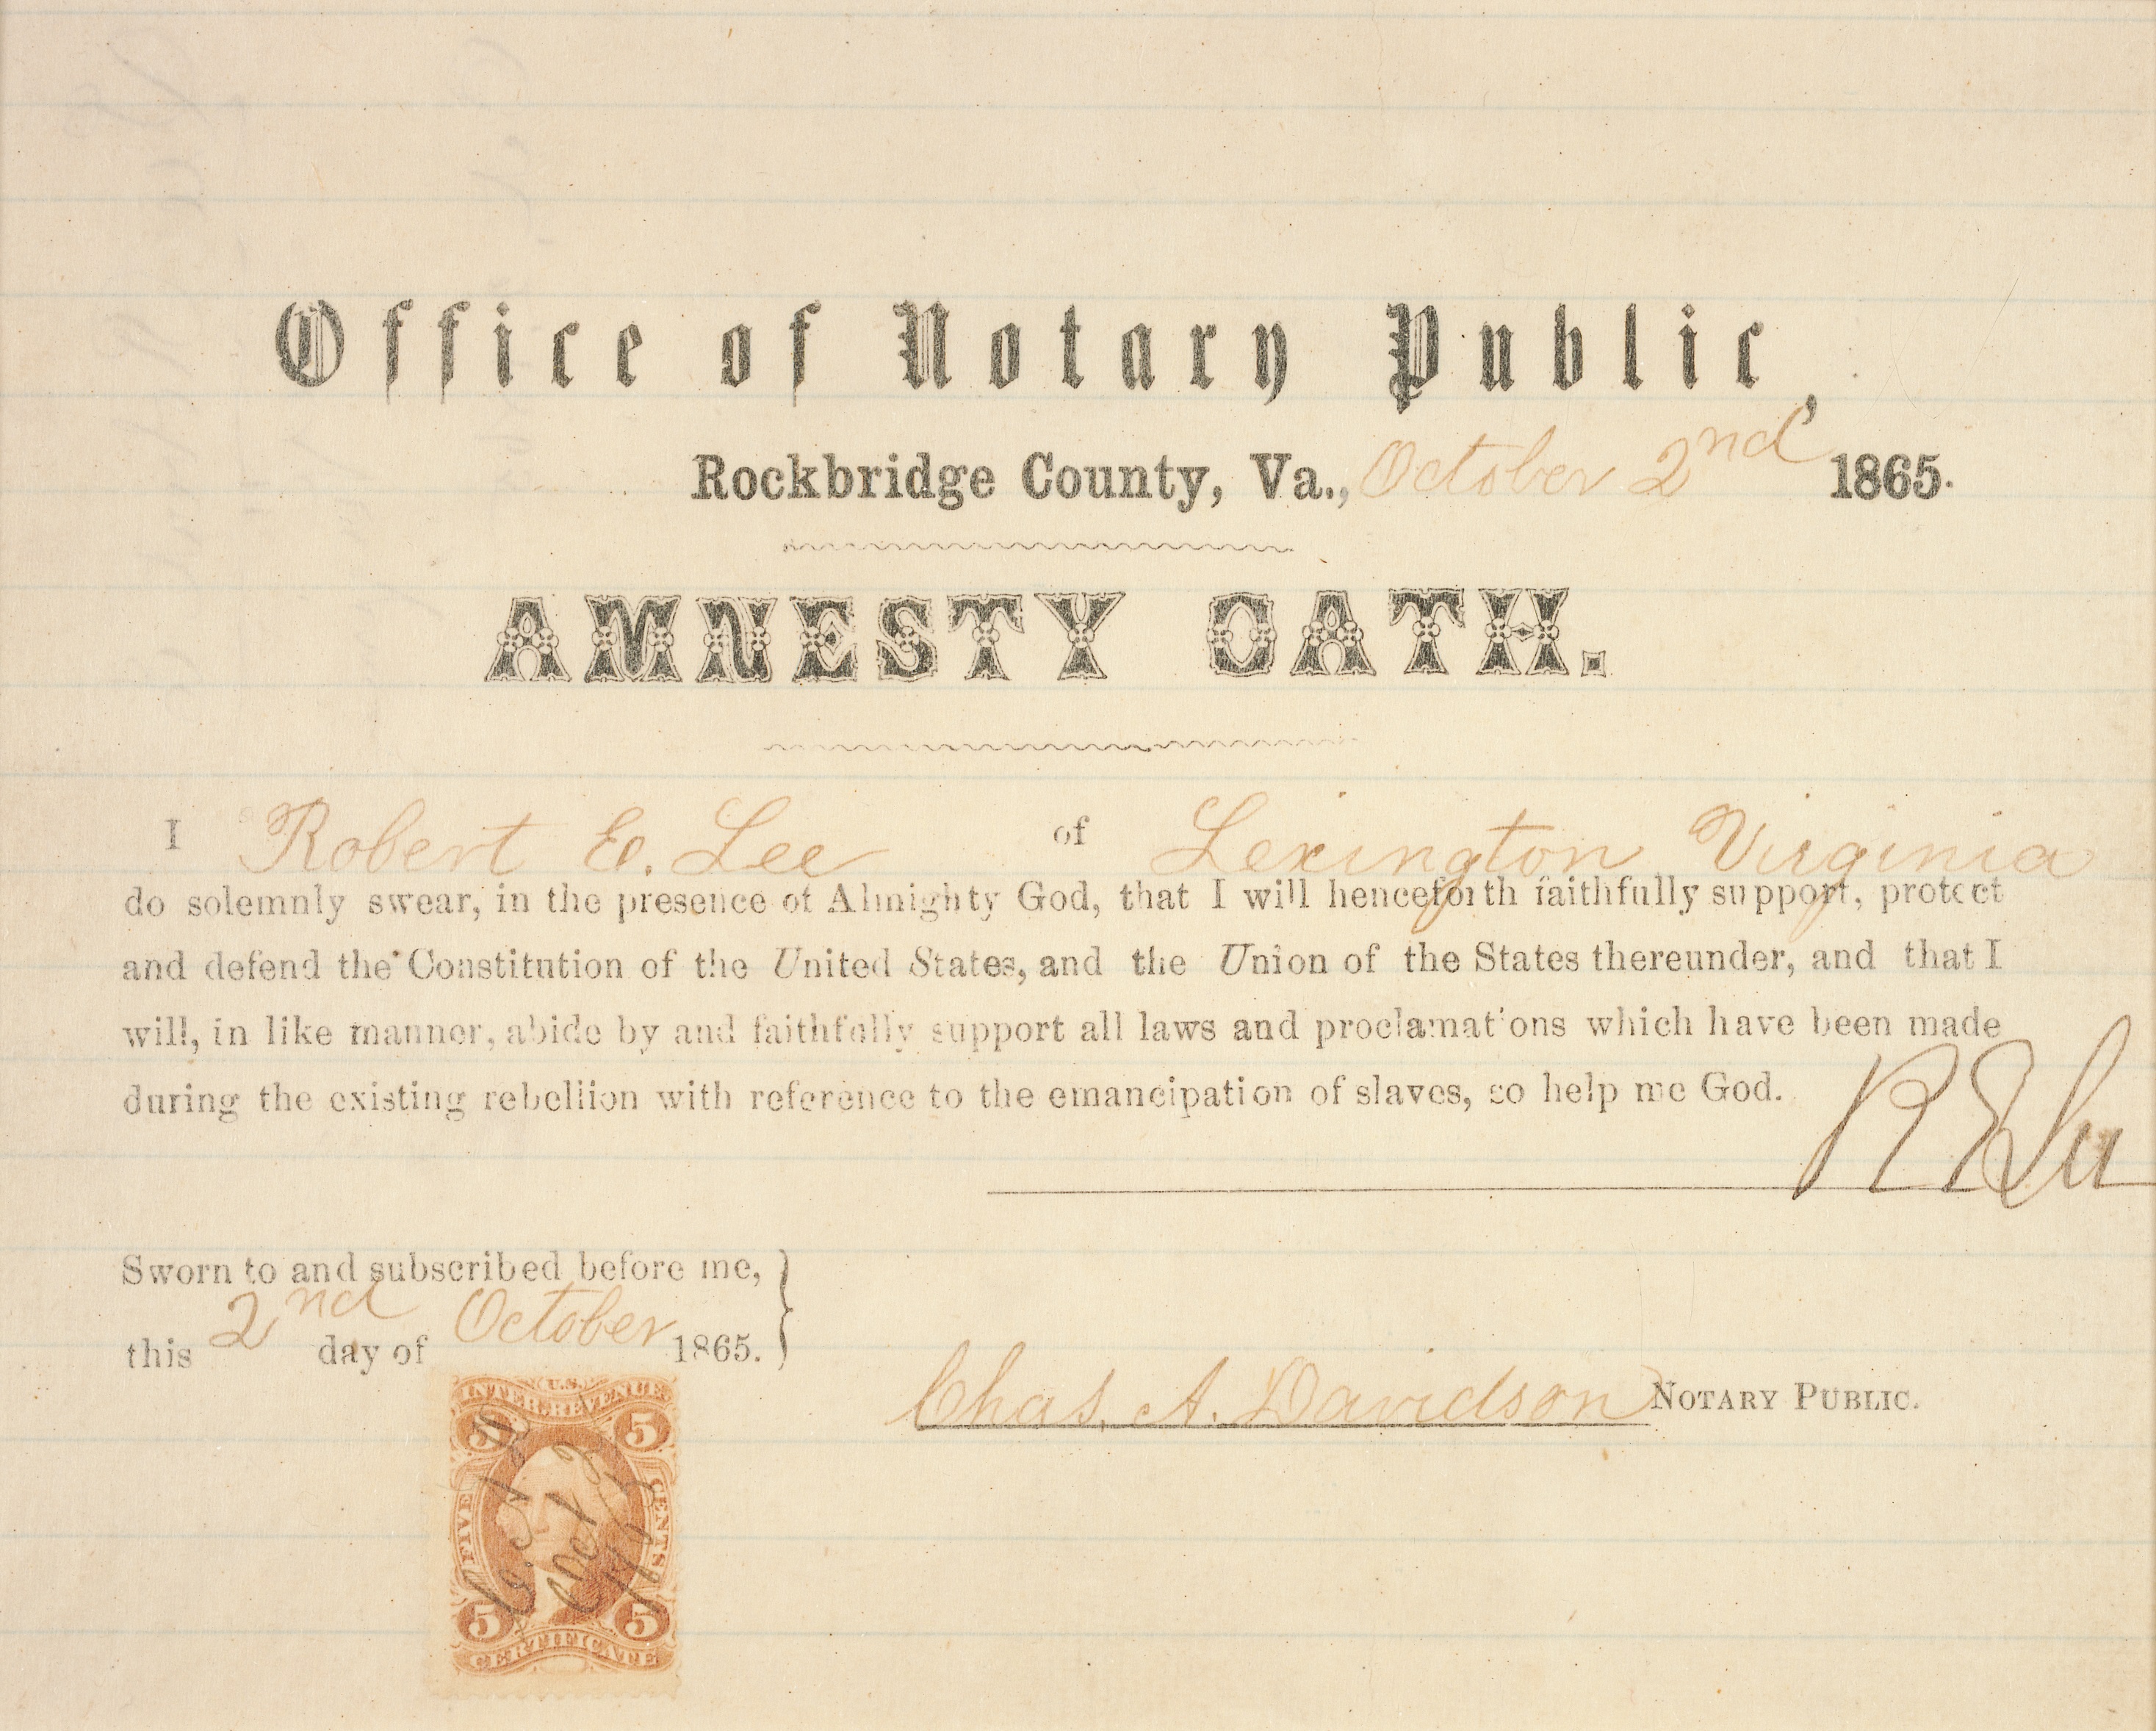 Office of Notary Public,
Rockbridge County, Va., October 2nd 1865.
AMNESTY OATH.
I Robert E. Lee of Lexington Virginia
do solemnly swear, in the presence of Almighty God, that I will henceforth faithfully support, protect
and defend the Constitution of the United States, and the Union of the States thereunder, and that I
will, in like manner, abide by and faithfully support all laws and proclamations which have been made
during the existing rebellion with reference to the emancipation of slaves, so help me God.
R E Lee
Sworn to and subscribed before me,
this 2nd day of October 1865.
Chas. A. Davidson NOTARY PUBLIC.
U.S.
INTER. REVENUE
5 5
FIVE CENTS
C. A. D.
Oct 2
5 5
CERTIFICATE